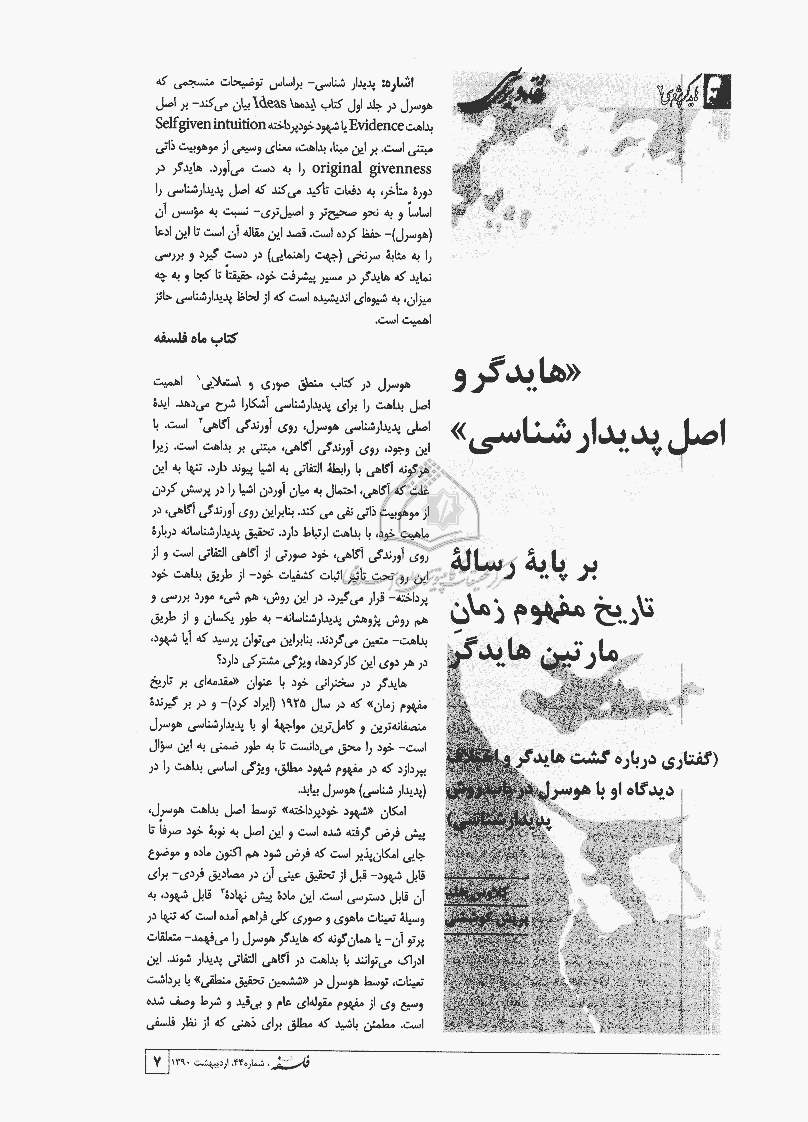 نقد و بررسی
«هایدگر و
اصل پدیدار شناسی»
بر پایهٔ رسالهٔ
تاریخ مفهوم زمانِ
مارتین هایدگر
(گفتاری درباره گشت هایدگر و اختلاف
دیدگاه او با هوسرل در باب روش
پدیدارشناسی)
کلاوس هلد
اشاره: پدیدار شناسی- براساس توضیحات منسجمی که
هوسرل در جلد اول کتاب ایده‌ها Ideas بیان می‌کند- بر اصل
بداهت Evidence یا شهود خودپرداخته Selfgiven intuition
مبتنی است. بر این مبنا، بداهت، معنای وسیعی از موهوبیت ذاتی
original givenness را به دست می‌آورد. هایدگر در
دورهٔ متأخر، به دفعات تأکید می‌کند که اصل پدیدارشناسی را
اساساً و به نحو صحیح‌تر و اصیل‌تری- نسبت به مؤسس آن
(هوسرل)- حفظ کرده است. قصد این مقاله آن است تا این ادعا
را به مثابهٔ سرنخی (جهت راهنمایی) در دست گیرد و بررسی
نماید که هایدگر در مسیر پیشرفت خود، حقیقتاً تا کجا و به چه
میزان، به شیوه‌ای اندیشیده است که از لحاظ پدیدارشناسی حائز
اهمیت است.
کتاب ماه فلسفه
هوسرل در کتاب منطق صوری و استعلایی۱ اهمیت
اصل بداهت را برای پدیدارشناسی آشکارا شرح می‌دهد. ایدهٔ
اصلی پدیدارشناسی هوسرل، روی آورندگی آگاهی۲ است. با
این وجود، روی آورندگی آگاهی، مبتنی بر بداهت است. زیرا
هرگونه آگاهی با رابطهٔ التفاتی به اشیا پیوند دارد. تنها به این
علت که آگاهی، احتمال به میان آوردن اشیا را در پرسش کردن
از موهوبیت ذاتی نفی می کند. بنابراین روی آورندگی آگاهی، در
ماهیت خود، با بداهت ارتباط دارد. تحقیق پدیدارشناسانه دربارهٔ
روی آورندگی آگاهی، خود صورتی از آگاهی التفاتی است و از
این رو تحت تأثیر اثبات کشفیات خود- از طریق بداهت خود
پرداخته- قرار می‌گیرد. در این روش، هم شیء مورد بررسی و
هم روش پژوهش پدیدارشناسانه- به طور یکسان و از طریق
بداهت- متعین می‌گردند. بنابراین می‌توان پرسید که آیا شهود،
در هر دوی این کارکردها، ویژگی مشترکی دارد؟
هایدگر در سخنرانی خود با عنوان «مقدمه‌ای بر تاریخ
مفهوم زمان» که در سال ۱۹۲۵ (ایراد کرد)- و در بر گیرندهٔ
منصفانه‌ترین و کامل‌ترین مواجههٔ او با پدیدارشناسی هوسرل
است- خود را محق می‌دانست تا به طور ضمنی به این سؤال
بپردازد که در مفهوم شهود مطلق، ویژگی اساسی بداهت را در
(پدیدار شناسی) هوسرل بیابد.
امکان «شهود خودپرداخته» توسط اصل بداهت هوسرل،
پیش فرض گرفته شده است و این اصل به نوبهٔ خود صرفاً تا
جایی امکان‌پذیر است که فرض شود هم اکنون ماده و موضوع
قابل شهود- قبل از تحقیق عینی آن در مصادیق فردی- برای
آن قابل دسترسی است. این مادهٔ پیش نهادهٔ۳ قابل شهود، به
وسیلهٔ تعینات ماهوی و صوری کلی فراهم آمده است که تنها در
پرتو آن- یا همان‌گونه که هایدگر هوسرل را می‌فهمد- متعلقات
ادراک می‌توانند با بداهت در آگاهی التفاتی پدیدار شوند. این
تعینات، توسط هوسرل در «ششمین تحقیق منطقی» با برداشت
وسیع وی از مفهوم مقوله‌ای عام و بی‌قید و شرط وصف شده
است. مطمئن باشید که مطلق برای ذهنی که از نظر فلسفی
فلسفه، شماره۴۴، اردیبهشت ۱۳۹۰ ۷